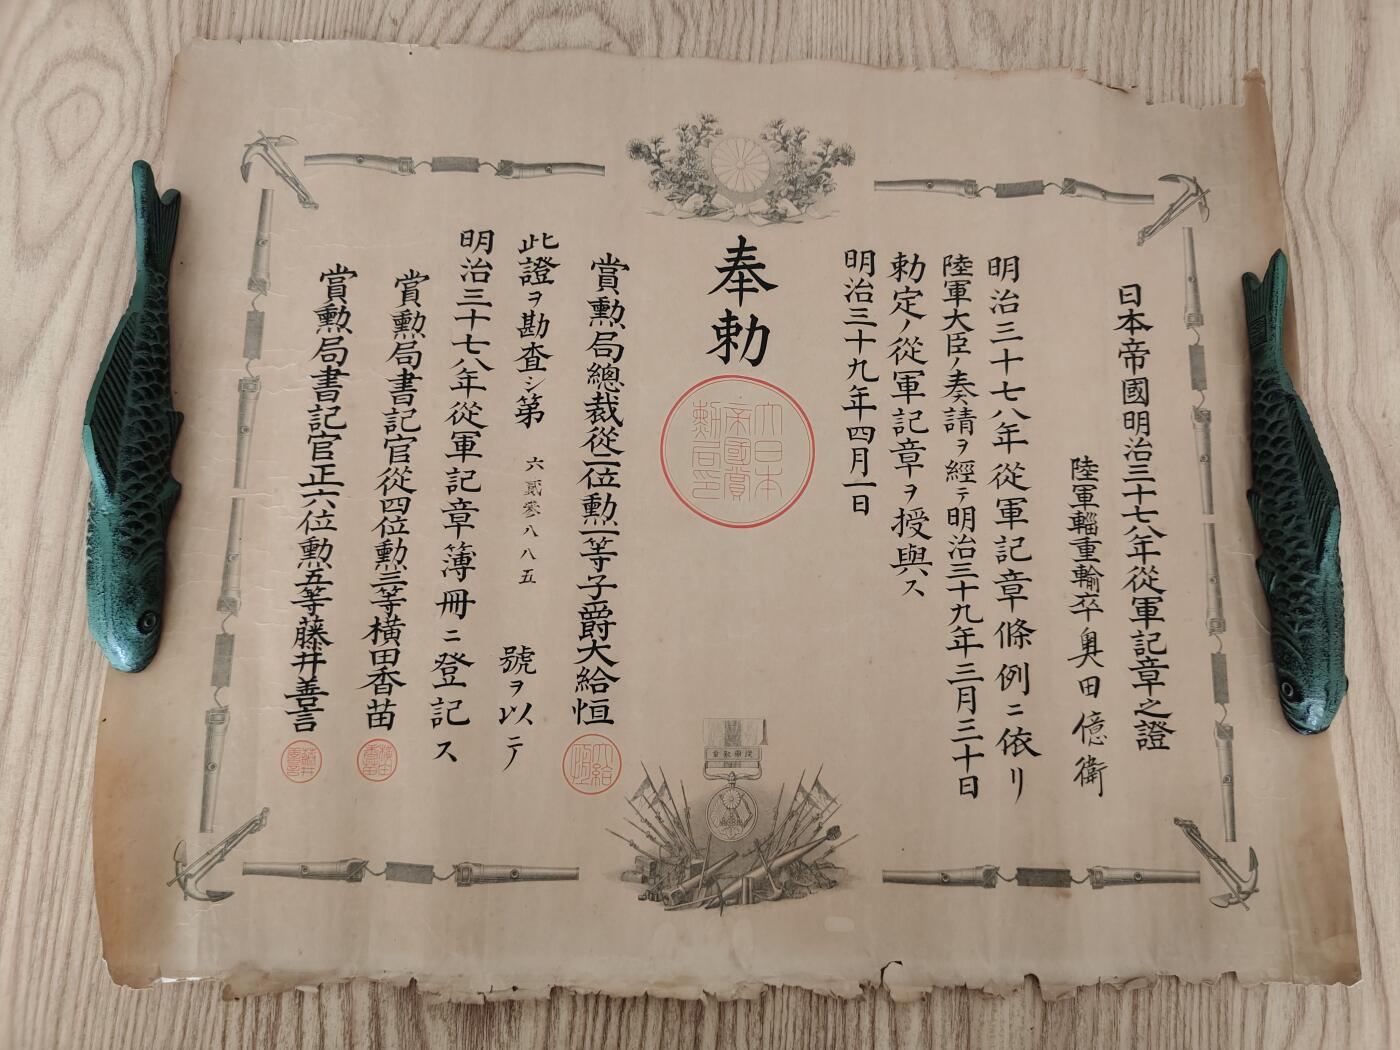 日本帝國明治三十七八年從軍記章之證
陸軍輜重輸卒奥田億衛
明治三十七八年從軍記章條例ニ依リ
陸軍大臣ノ奏請ヲ經テ明治三十九年三月三十日
勅定ノ從軍記章ヲ授與ス
明治三十九年四月一日
奉勅
大日本
帝國賞
勲局印
賞勲局總裁從二位勲一等子爵大給恒
大給
恒
此證ヲ勘査シ第六貳參八八五號ヲ以テ
明治三十七八年從軍記章簿冊ニ登記ス
賞勲局書記官從四位勲三等横田香苗
横田
香苗
賞勲局書記官正六位勲五等藤井善言
藤井
善言
章記軍從